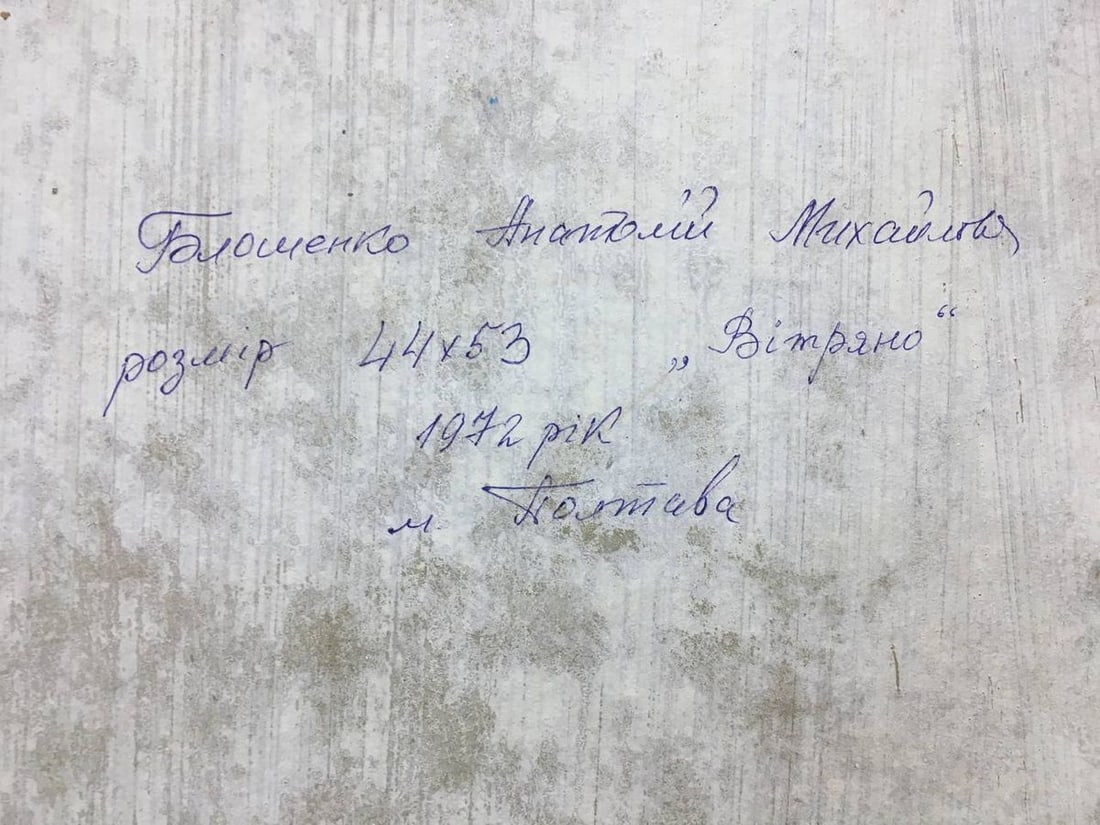 Блошенко Анатолій Михайлов
розмір 44х53 „Вітряно“
1972 рік
м Полтава